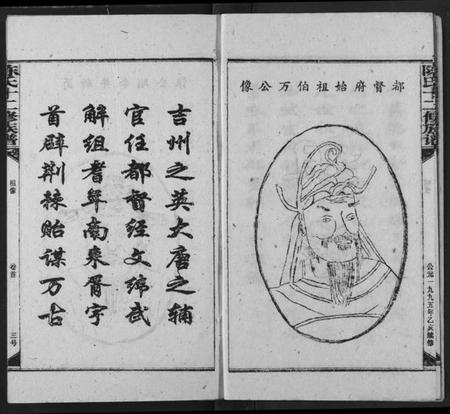 都督府始祖伯万公像
公元一九九五年乙亥續修
吉州之英大唐之辅
官任都督经文纬武
解组耆年南来胥宇
首辟荆棘贻谋万古
陈氏十二修族谱
祖像
卷首
三号